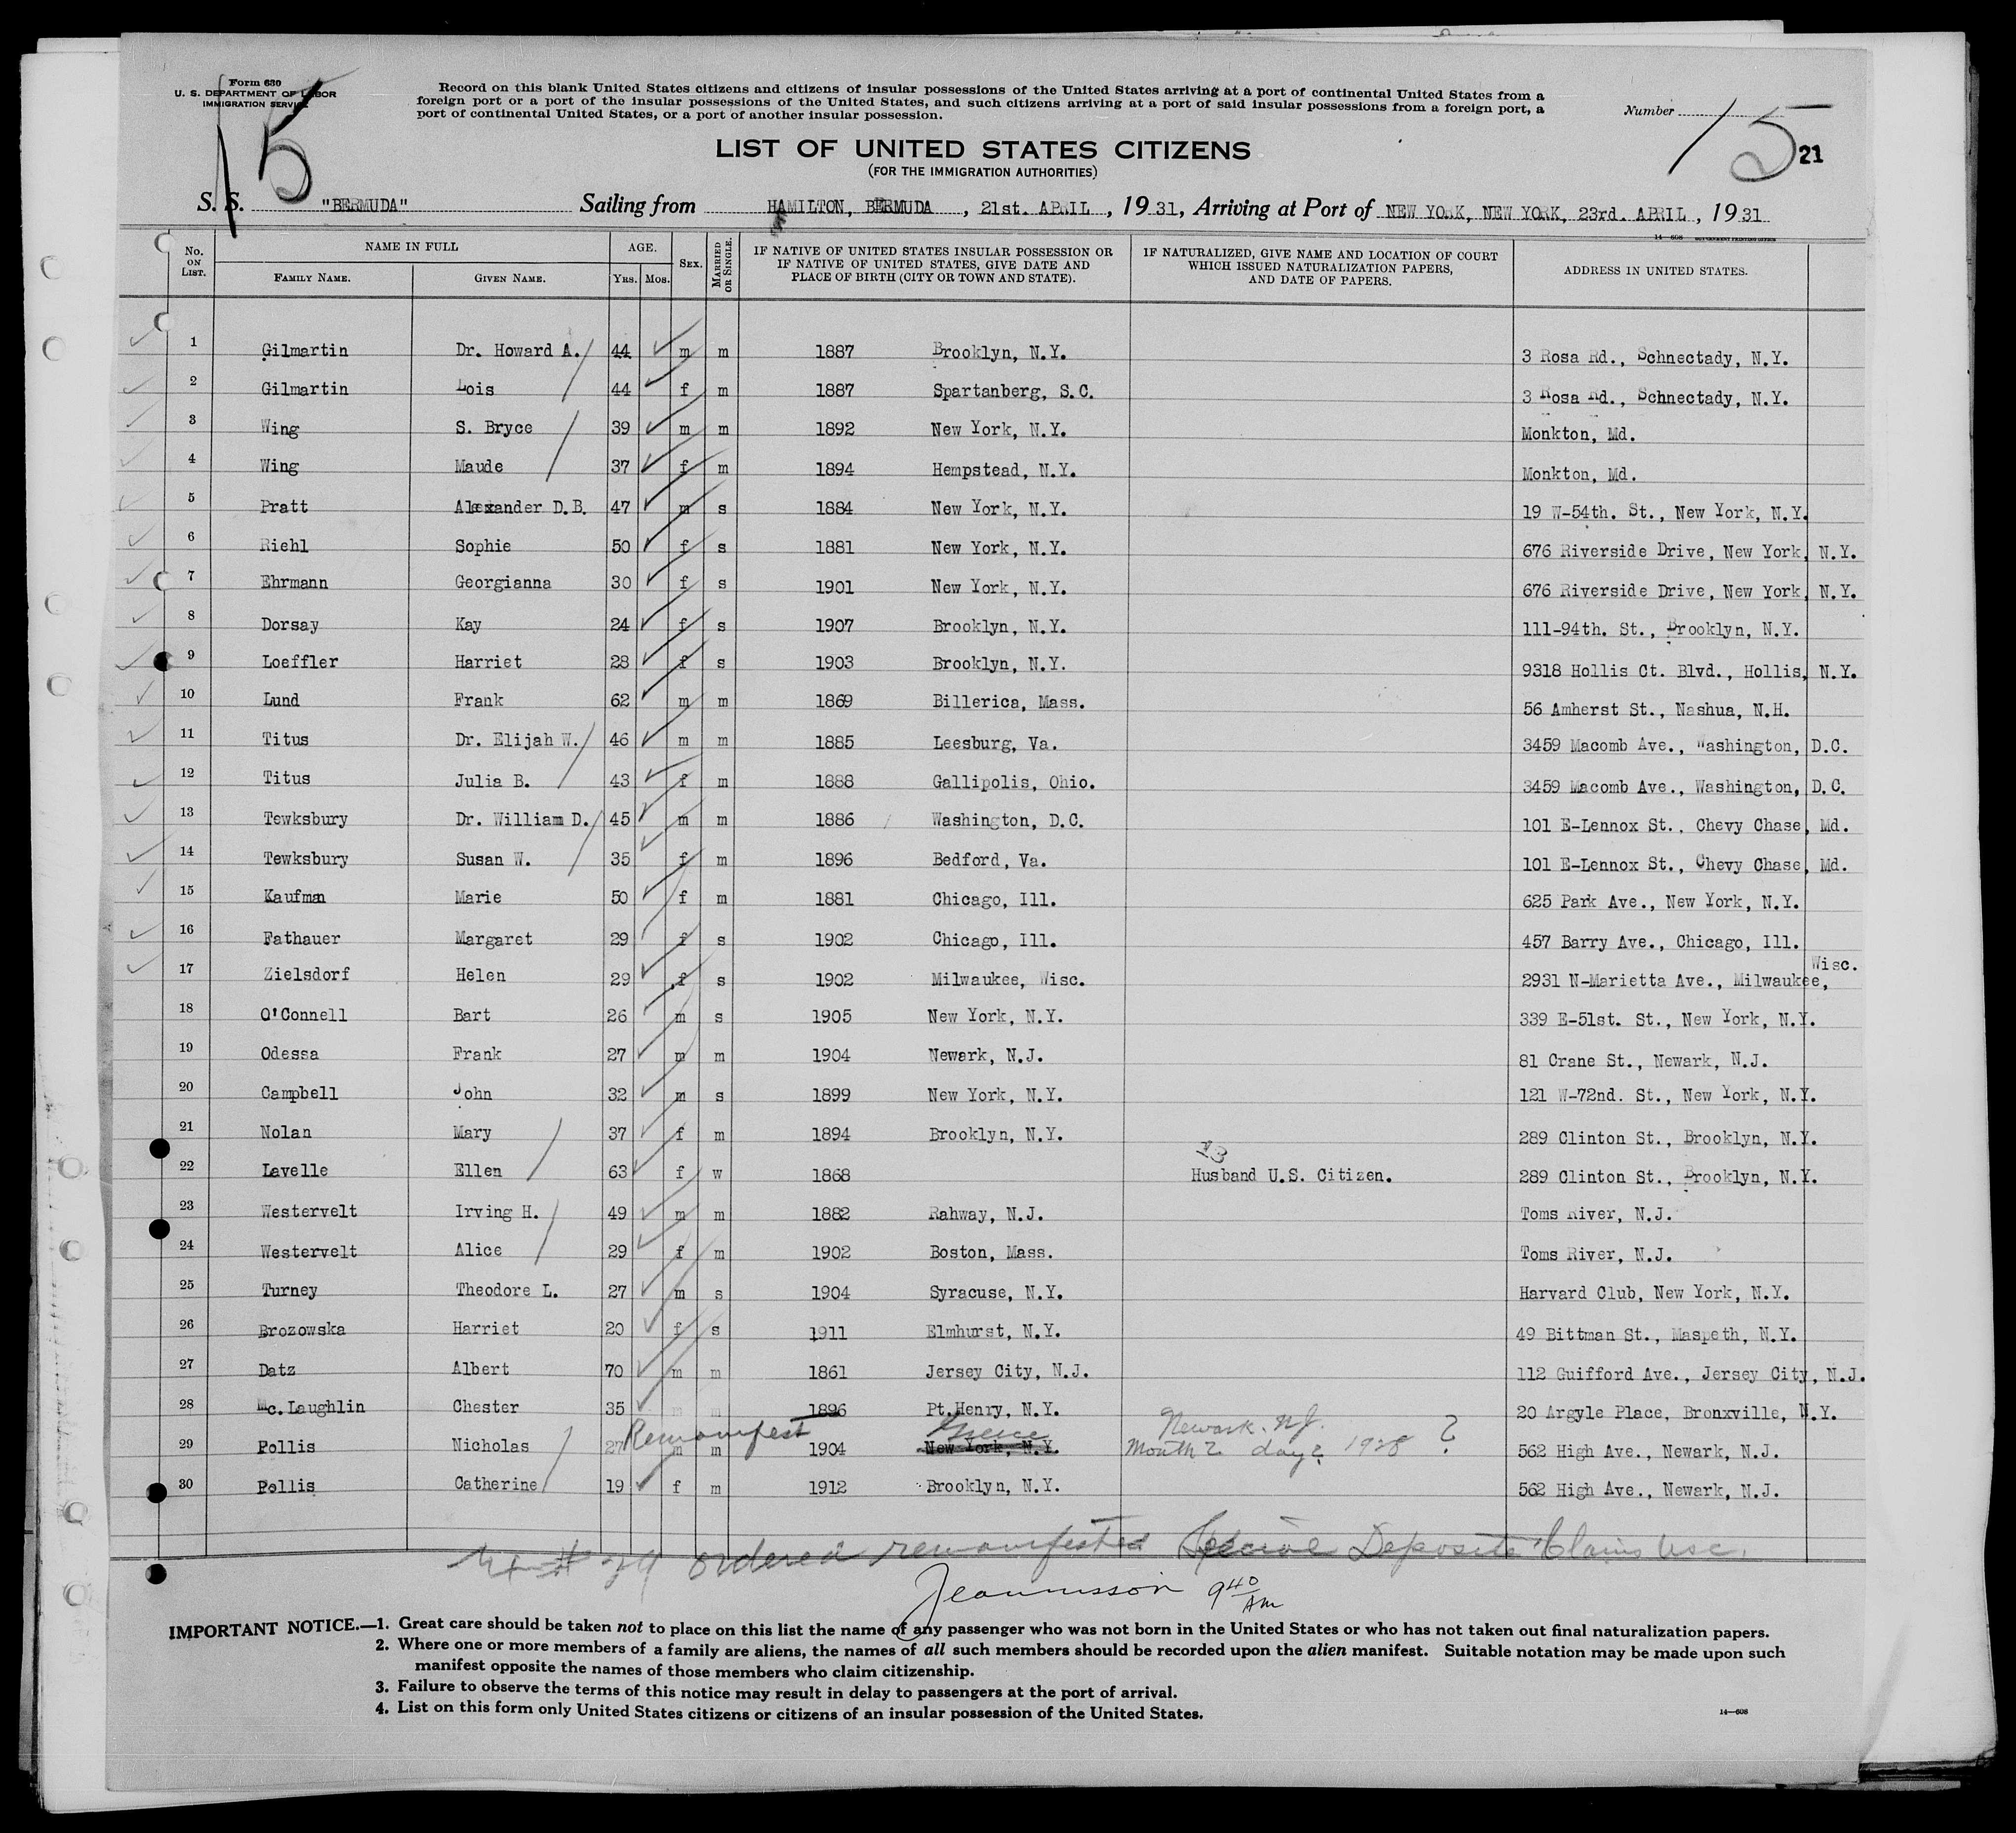 Form 630
U. S. DEPARTMENT OF LABOR
IMMIGRATION SERVICE
15
Record on this blank United States citizens and citizens of insular possessions of the United States arriving at a port of continental United States from a
foreign port or a port of the insular possessions of the United States, and such citizens arriving at a port of said insular possessions from a foreign port, a
port of continental United States, or a port of another insular possession.
Number 15
21
LIST OF UNITED STATES CITIZENS
(FOR THE IMMIGRATION AUTHORITIES)
S. S. "BERMUDA" Sailing from HAMILTON, BERMUDA, 21st. APRIL, 1931, Arriving at Port of NEW YORK, NEW YORK, 23rd. APRIL, 1931
14-608 GOVERNMENT PRINTING OFFICE
No. ON LIST. NAME IN FULL FAMILY NAME. GIVEN NAME. AGE. YRS. MOS. SEX. MARRIED OR SINGLE. IF NATIVE OF UNITED STATES INSULAR POSSESSION OR IF NATIVE OF UNITED STATES, GIVE DATE AND PLACE OF BIRTH (CITY OR TOWN AND STATE). IF NATURALIZED, GIVE NAME AND LOCATION OF COURT WHICH ISSUED NATURALIZATION PAPERS, AND DATE OF PAPERS. ADDRESS IN UNITED STATES.
1 Gilmartin Dr. Howard A. 44 m m 1887 Brooklyn, N.Y. 3 Rosa Rd., Schnectady, N.Y.
2 Gilmartin Lois 44 f m 1887 Spartanberg, S.C. 3 Rosa Rd., Schnectady, N.Y.
3 Wing S. Bryce 39 m m 1892 New York, N.Y. Monkton, Md.
4 Wing Maude 37 f m 1894 Hempstead, N.Y. Monkton, Md.
5 Pratt Alexander D.B. 47 m s 1884 New York, N.Y. 19 W-54th. St., New York, N.Y.
6 Riehl Sophie 50 f s 1881 New York, N.Y. 676 Riverside Drive, New York, N.Y.
7 Ehrmann Georgianna 30 f s 1901 New York, N.Y. 676 Riverside Drive, New York, N.Y.
8 Dorsay Kay 24 f s 1907 Brooklyn, N.Y. 111-94th. St., Brooklyn, N.Y.
9 Loeffler Harriet 28 f s 1903 Brooklyn, N.Y. 9318 Hollis Ct. Blvd., Hollis, N.Y.
10 Lund Frank 62 m m 1869 Billerica, Mass. 56 Amherst St., Nashua, N.H.
11 Titus Dr. Elijah W. 46 m m 1885 Leesburg, Va. 3459 Macomb Ave., Washington, D.C.
12 Titus Julia B. 43 f m 1888 Gallipolis, Ohio. 3459 Macomb Ave., Washington, D.C.
13 Tewksbury Dr. William D. 45 m m 1886 Washington, D.C. 101 E-Lennox St., Chevy Chase, Md.
14 Tewksbury Susan W. 35 f m 1896 Bedford, Va. 101 E-Lennox St., Chevy Chase, Md.
15 Kaufman Marie 50 f m 1881 Chicago, Ill. 625 Park Ave., New York, N.Y.
16 Fathauer Margaret 29 f s 1902 Chicago, Ill. 457 Barry Ave., Chicago, Ill.
17 Zielsdorf Helen 29 f s 1902 Milwaukee, Wisc. 2931 N-Marietta Ave., Milwaukee, Wisc.
18 O'Connell Bart 26 m s 1905 New York, N.Y. 339 E-51st. St., New York, N.Y.
19 Odessa Frank 27 m m 1904 Newark, N.J. 81 Crane St., Newark, N.J.
20 Campbell John 32 m s 1899 New York, N.Y. 121 W-72nd. St., New York, N.Y.
21 Nolan Mary 37 f m 1894 Brooklyn, N.Y. 289 Clinton St., Brooklyn, N.Y.
22 Lavelle Ellen 63 f w 1868 Husband U.S. Citizen. 289 Clinton St., Brooklyn, N.Y.
23 Westervelt Irving H. 49 m m 1882 Rahway, N.J. Toms River, N.J.
24 Westervelt Alice 29 f m 1902 Boston, Mass. Toms River, N.J.
25 Turney Theodore L. 27 m s 1904 Syracuse, N.Y. Harvard Club, New York, N.Y.
26 Brozowska Harriet 20 f s 1911 Elmhurst, N.Y. 49 Bittman St., Maspeth, N.Y.
27 Datz Albert 70 m m 1861 Jersey City, N.J. 112 Guifford Ave., Jersey City, N.J.
28 Mc.Laughlin Chester 35 m m 1896 Pt.Henry, N.Y. 20 Argyle Place, Bronxville, N.Y.
Remanifest Greece Newark. N.J.
29 Pollis Nicholas 27 m m 1904 New York, N.Y. Month ? day ? 1928 ? 562 High Ave., Newark, N.J.
30 Pollis Catherine 19 f m 1912 Brooklyn, N.Y. 562 High Ave., Newark, N.J.
# 29 ordered remanifested Special Deposite Claims usc.
9 40 AM
IMPORTANT NOTICE.—1. Great care should be taken not to place on this list the name of any passenger who was not born in the United States or who has not taken out final naturalization papers.
2. Where one or more members of a family are aliens, the names of all such members should be recorded upon the alien manifest. Suitable notation may be made upon such
manifest opposite the names of those members who claim citizenship.
3. Failure to observe the terms of this notice may result in delay to passengers at the port of arrival.
4. List on this form only United States citizens or citizens of an insular possession of the United States.
14-608